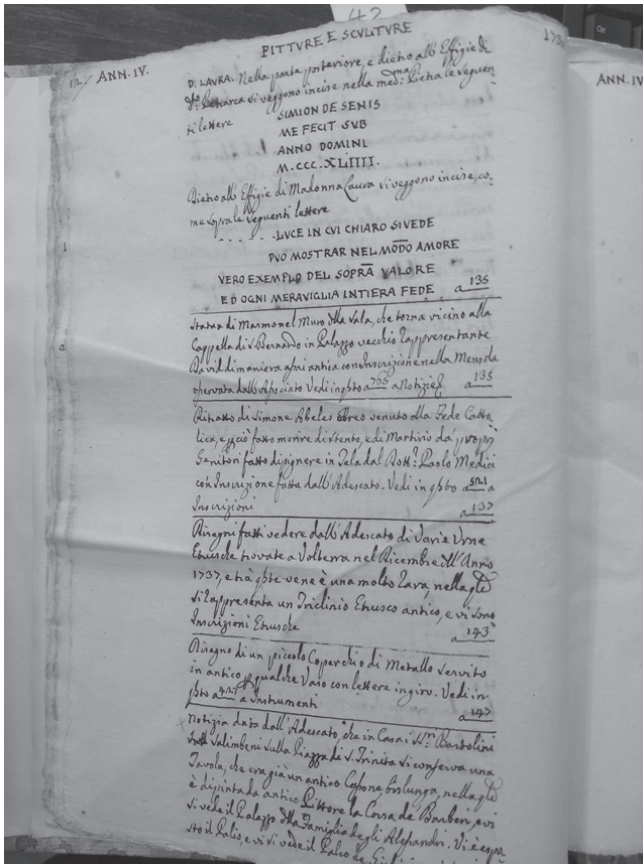 42
PITTVRE E SCVLTVRE
ANN. IV.
ANN. IV
D. LAVRA. Nella parte posteriore, e dietro all'Effigie di
Petrarca si veggono incise nella med.ma Pietra le seguen
ti lettere
SIMION DE SENIS
ME FECIT SVB
ANNO DOMINI
M.CCC.XLIIII.
Dietro all'Effigie di Madonna Laura si veggono incise, co-
me sopra le seguenti lettere
. . . . . . LVCE IN CVI CHIARO SI VEDE
PVO MOSTRAR NEL MŌDO AMORE
VERO EXEMPLO DEL SOPRĀ VALORE
ED OGNI MERAVIGLIA INTIERA FEDE a 135
Statua di Marmo nel Muro della Sala, che torna vicino alla
Cappella di S. Bernardo in Palazzo vecchio rappresentante
David di maniera assai antica con Inscrizione nella Mensola
osservata dall'Apociato Vedi in qsto a 755 a Notizie a 135
Ritratto di Simone Abeles Ebreo venuto alla Fede Catto
lica, e fatto morire di stento, e di Martirio da' proprj
Genitori fatto dipignere in Tela dal Dott.r Paolo Medici
con Inscrizione fatta dall'Adescato. Vedi in qsto a 521 a
Inscrizioni a 137
Disegni fatti vedere dall'Adescato di Varie Urne
Etrusche trovate a Volterra nel Dicembre dell'Anno
1737, e trà qste ve ne è una molto rara, nella qle
si rappresenta un Triclinio Etrusco antico, e vi sono
Inscrizioni Etrusche a 143
Disegno di un piccolo Coperchio di Metallo servito
in antico p qualche Vaso con lettere in giro. Vedi in
qsto a a Instrumenti a 147
Notizia data dall'Adescato, che in Casa i SS.ri Bartolini
Salimbeni sulla Piazza di S. Trinita si conserva una
Tavola, che era già un antico Cofano bislungo, nella qle
è dipinta da antico Pittore la Corsa de Barberi, e vi
si vede il Palazzo della Famiglia degli Alessandri. Vi è espo
sto il Palio, e vi si vede il Palco de